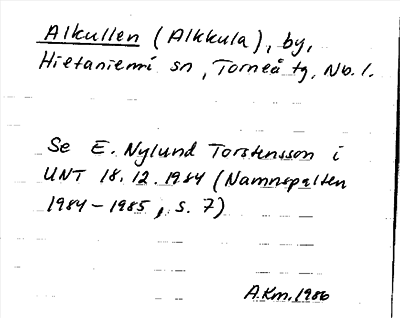 Alkullen (Alkkula), by,
Hietaniemi sn, Torneå tg, Nb. l.
Se E. Nylund Torstensson i
UNT 18.12.1984 (Namnspalten
1984-1985, s. 7)
A.Km. 1986